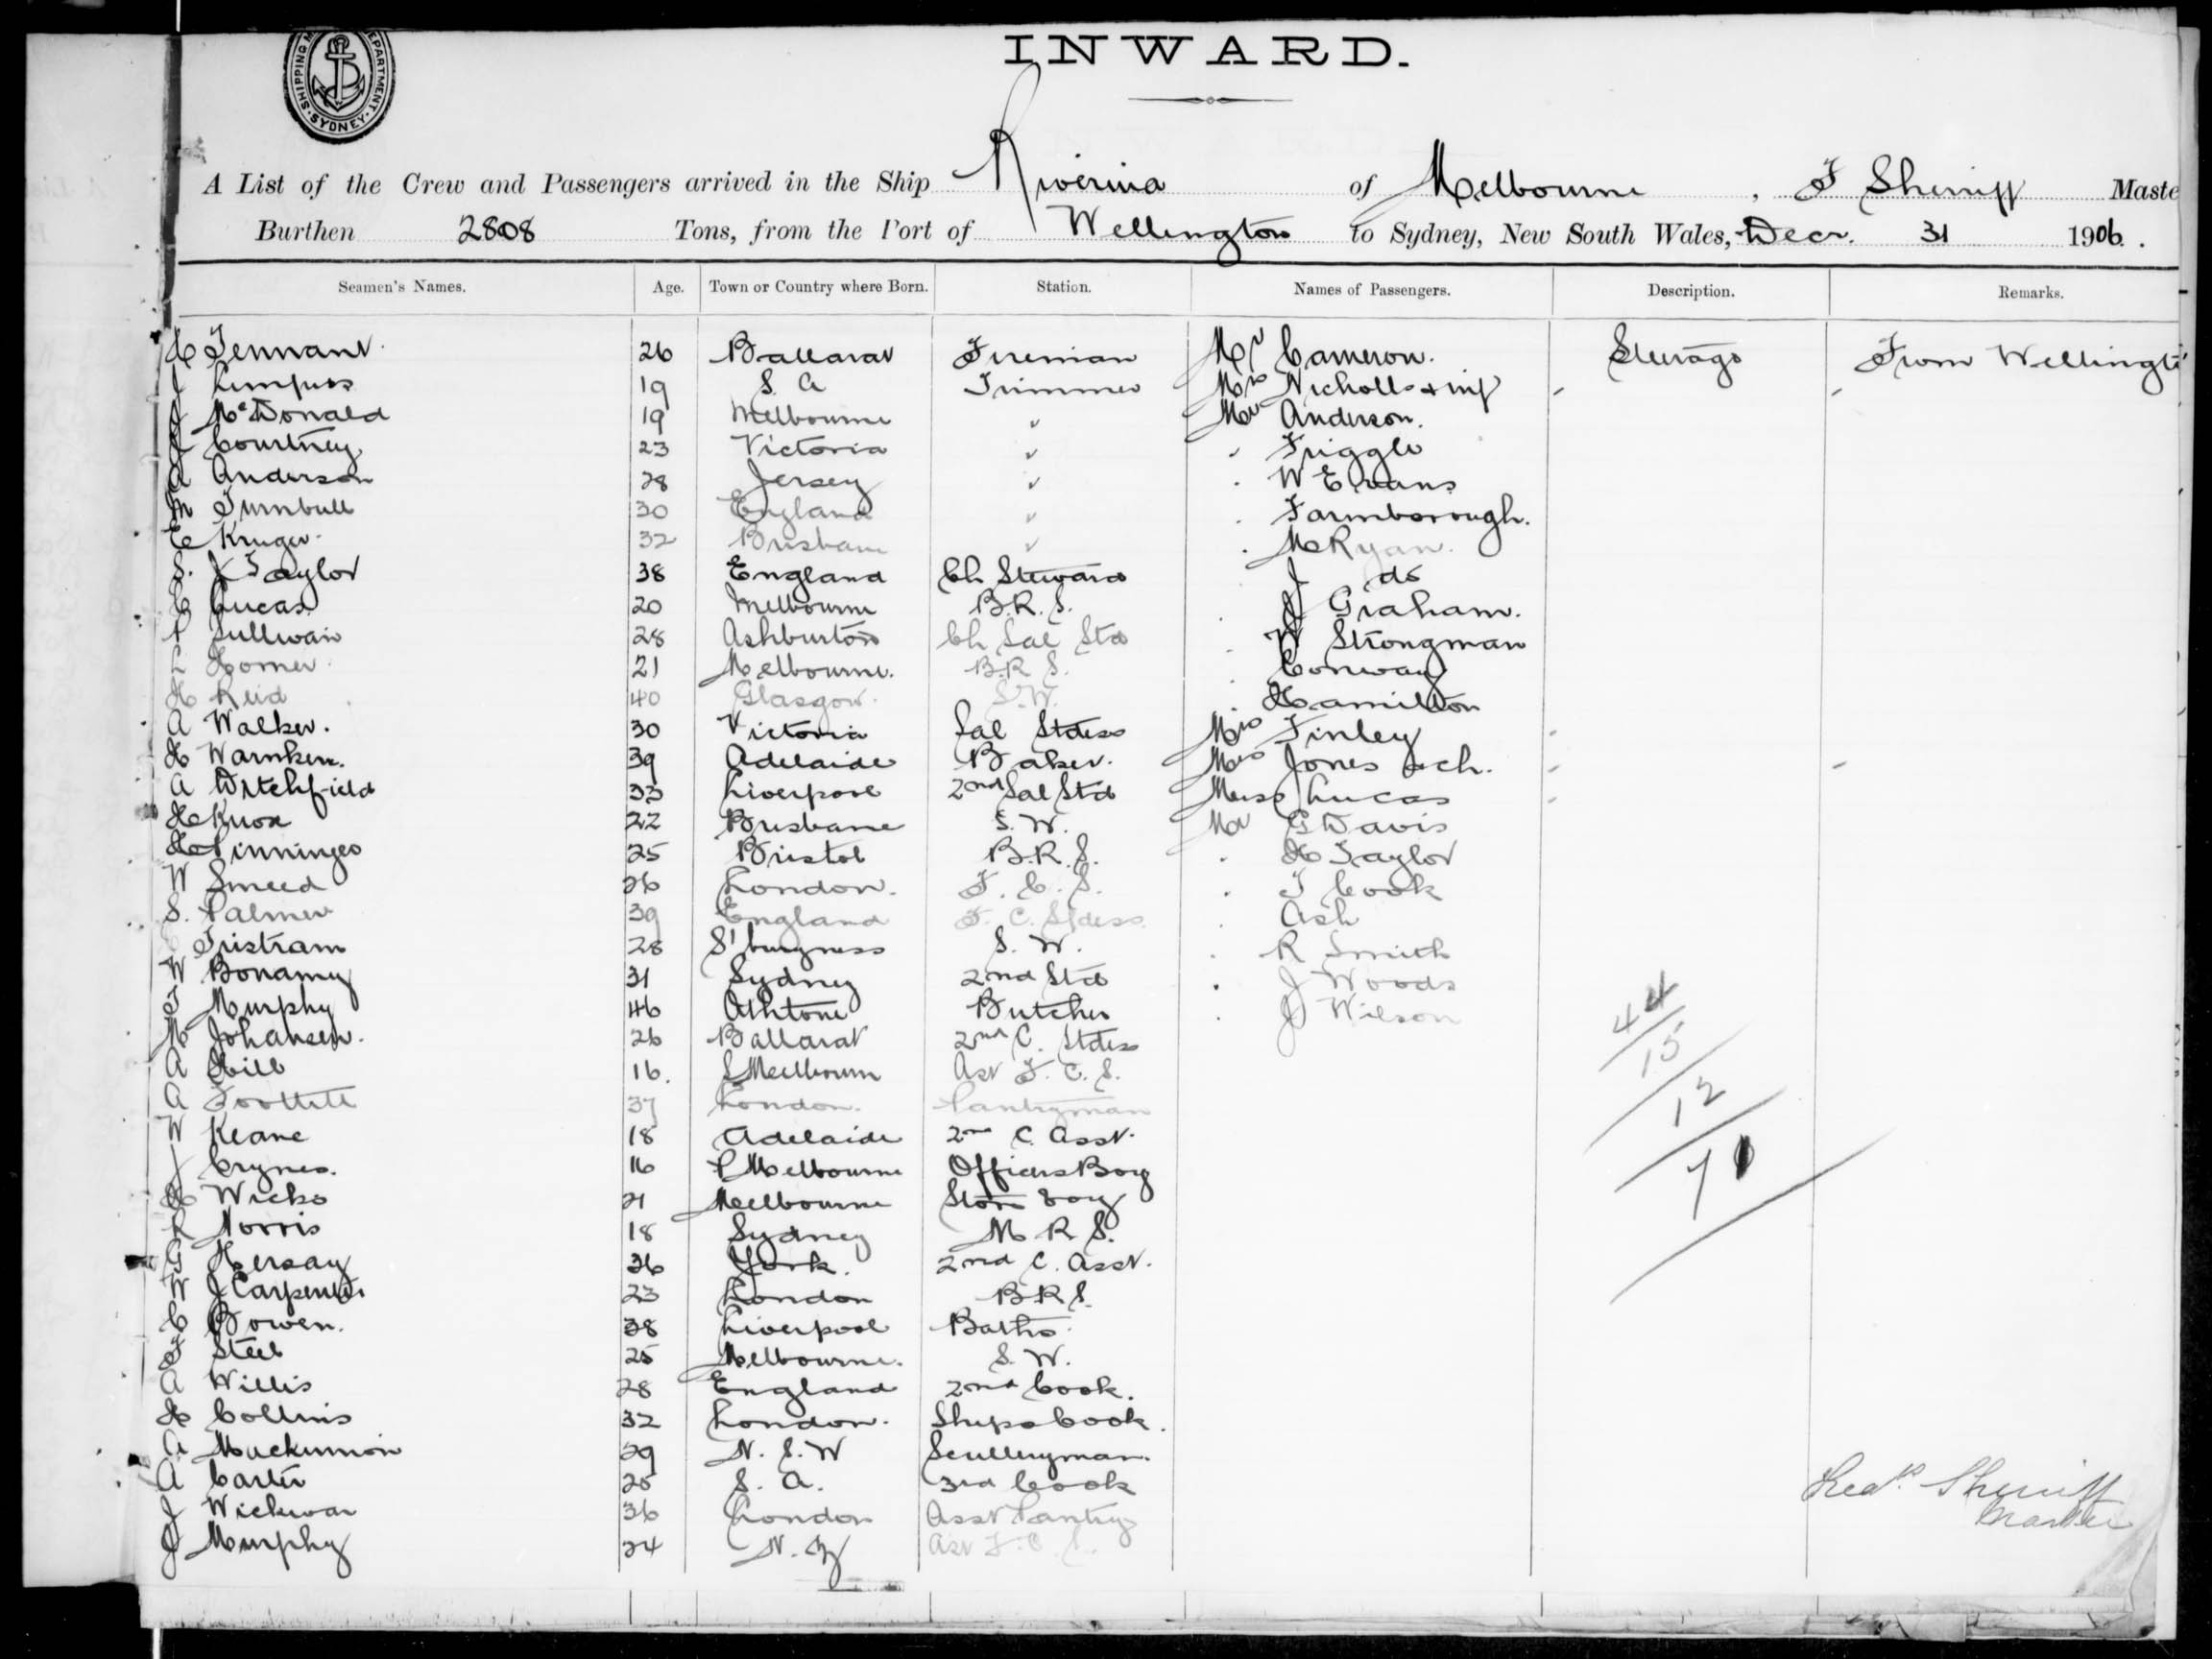 SHIPPING M DEPARTMENT. SYDNEY
INWARD.
A List of the Crew and Passengers arrived in the Ship Riverina of Melbourne, F Sherriff Maste
Burthen 2808 Tons, from the Port of Wellington to Sydney, New South Wales, Decr. 31 1906.
Seamen's Names. Age. Town or Country where Born. Station. Names of Passengers. Description. Remarks.
H Tennant 26 Ballarat Fireman Mr Cameron. Steerage From Wellingt
J 19 S. A Trimmer Mrs Nicholls + inf
J McDonald 19 Melbourne " Mr Anderson.
J Courtney 23 Victoria " " Triggle
A Anderson 28 Jersey " " W Evans
M Turnbull 30 England " " Farmborough.
E Kruger 32 Brisbane " " M Ryan
S. J Taylor 38 England Ch Steward " J do
C Lucas 20 Melbourne B.R.S. " J Graham.
P Sullivan 28 Ashburton Ch Sal Std " W Strongman
L Homer 21 Melbourne. B.R.S. " Conway
H Reid 40 Glasgow. S.W. " Hamilton
A Walker. 30 Victoria Sal Stdess Mrs Finley
H Warnken. 39 Adelaide Baker. Mrs Jones + ch.
A Ditchfield 33 Liverpool 2nd Sal Std Miss Lucas
H Knox 22 Brisbane S.W. Mr G Davis
H 25 Bristol B.R.S. " H Taylor
W Smeed 26 London. F.C.S. " T Cook
S. Palmer 39 England F.C. Stdess " Ash
Tristram 28 S.W. " R Smith
W Bonamy 31 Sydney 2nd Std " J Woods
T Murphy 46 Butcher " J Wilson
M Johansen. 26 Ballarat 2nd C. Stdess 44
A Hill 16. S Melbourn Ast F.C.S. 15
A 37 London. Pantryman 12
W Keane 18 Adelaide 2nd C. Asst. 71
J Crynes. 16 P Melbourne Officers Boy
H Wicks 21 Melbourne Store Boy
R Norris 18 Sydney M R S.
G Hersay 36 York. 2nd C. Asst.
W J Carpenter 23 London B R S.
C Bowen. 38 Liverpool Baths
F Steel 25 Melbourne. S.W.
A Willis 28 England 2nd Cook.
H Collins 32 London. Ships Cook.
A Mackinnon 29 N.S.W Sculleryman.
A Carter 25 S.A. 3rd Cook
J Wickwar 36 London Asst Pantry
J Murphy 24 N.Z Ast F.C.S.
Fredk Sherriff
Master